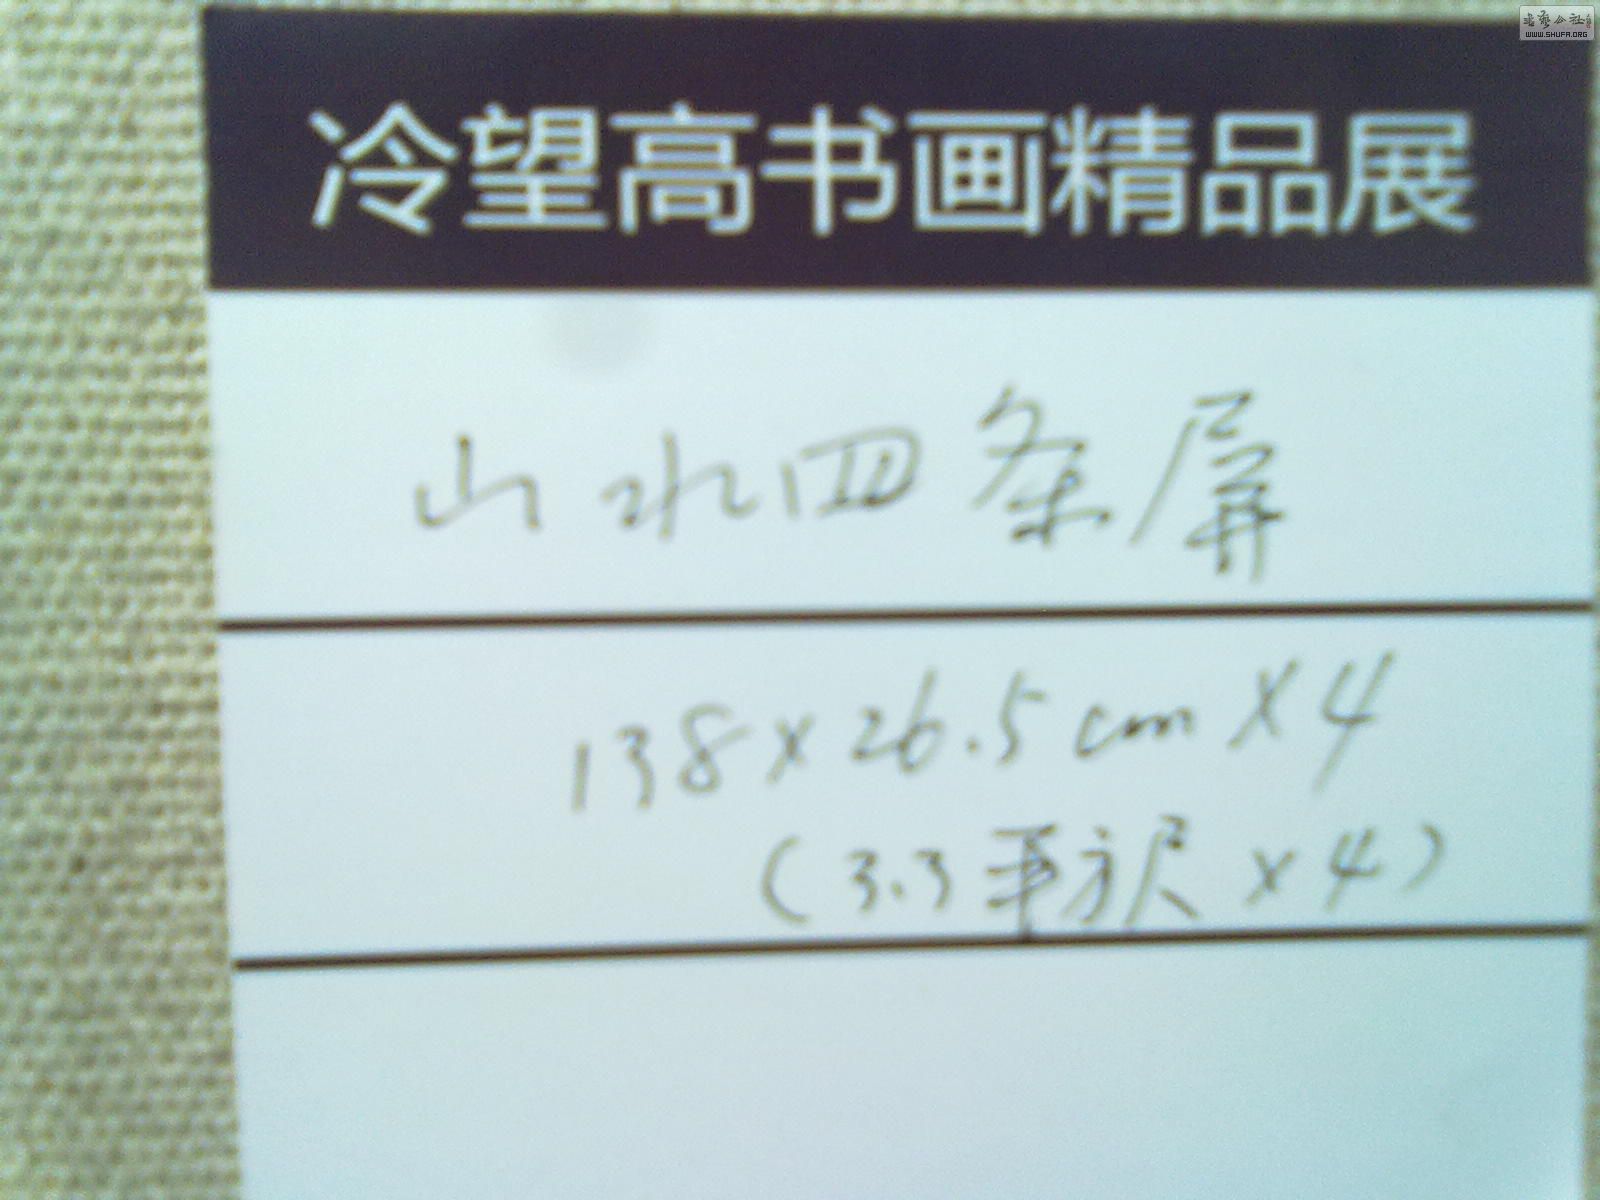 书艺公社
WWW.SHUFA.ORG
冷望高书画精品展
山水四条屏
138×26.5cm×4
(3.3平方尺×4)